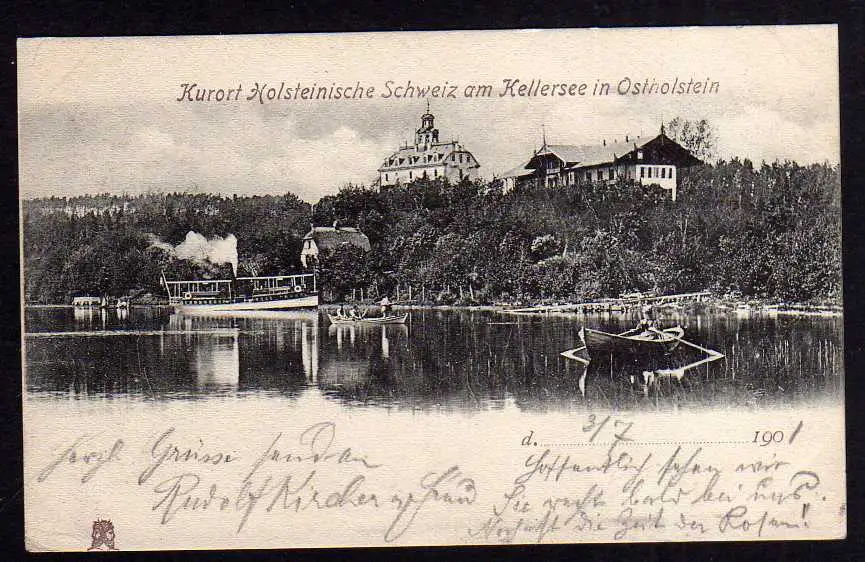 Kurort Holsteinische Schweiz am Kellersee in Ostholstein
d. 3/7 1901
Herzl. Grüsse senden
Rudolf Kircher & Frau
Hoffentlich sehen wir
Sie recht bald bei uns.
die Zeit der Rosen!